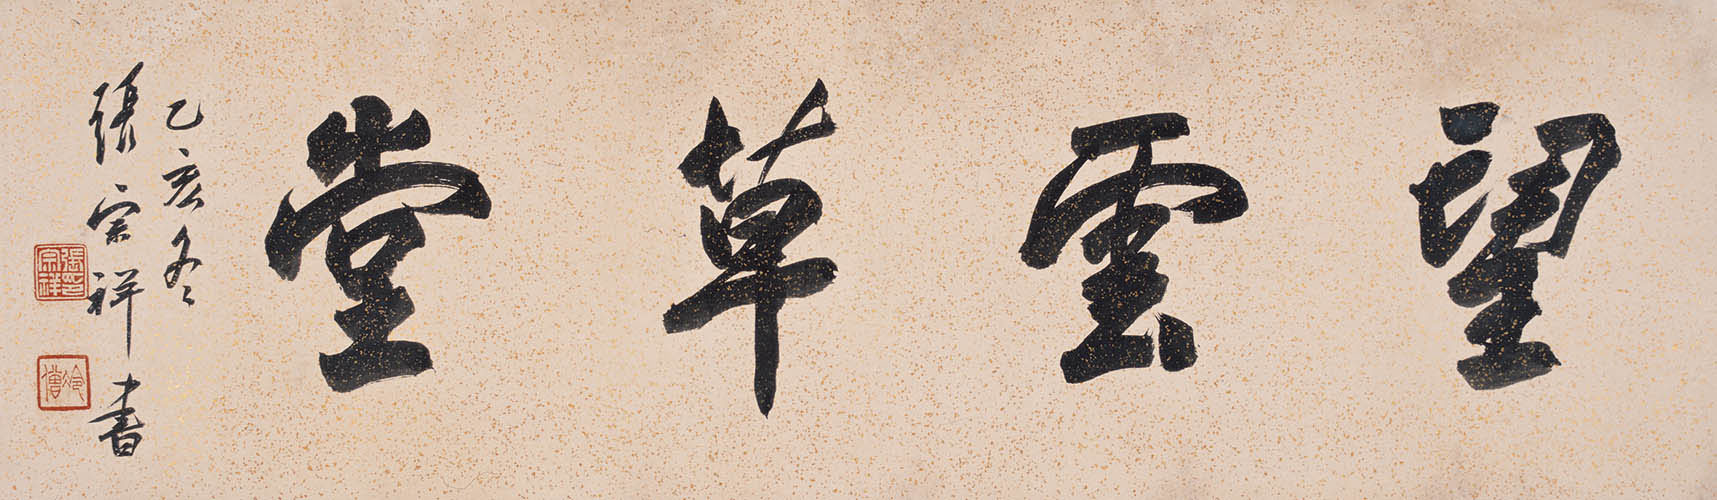 望雲草堂
乙亥冬
張宗祥書
張宗祥印
冷僧